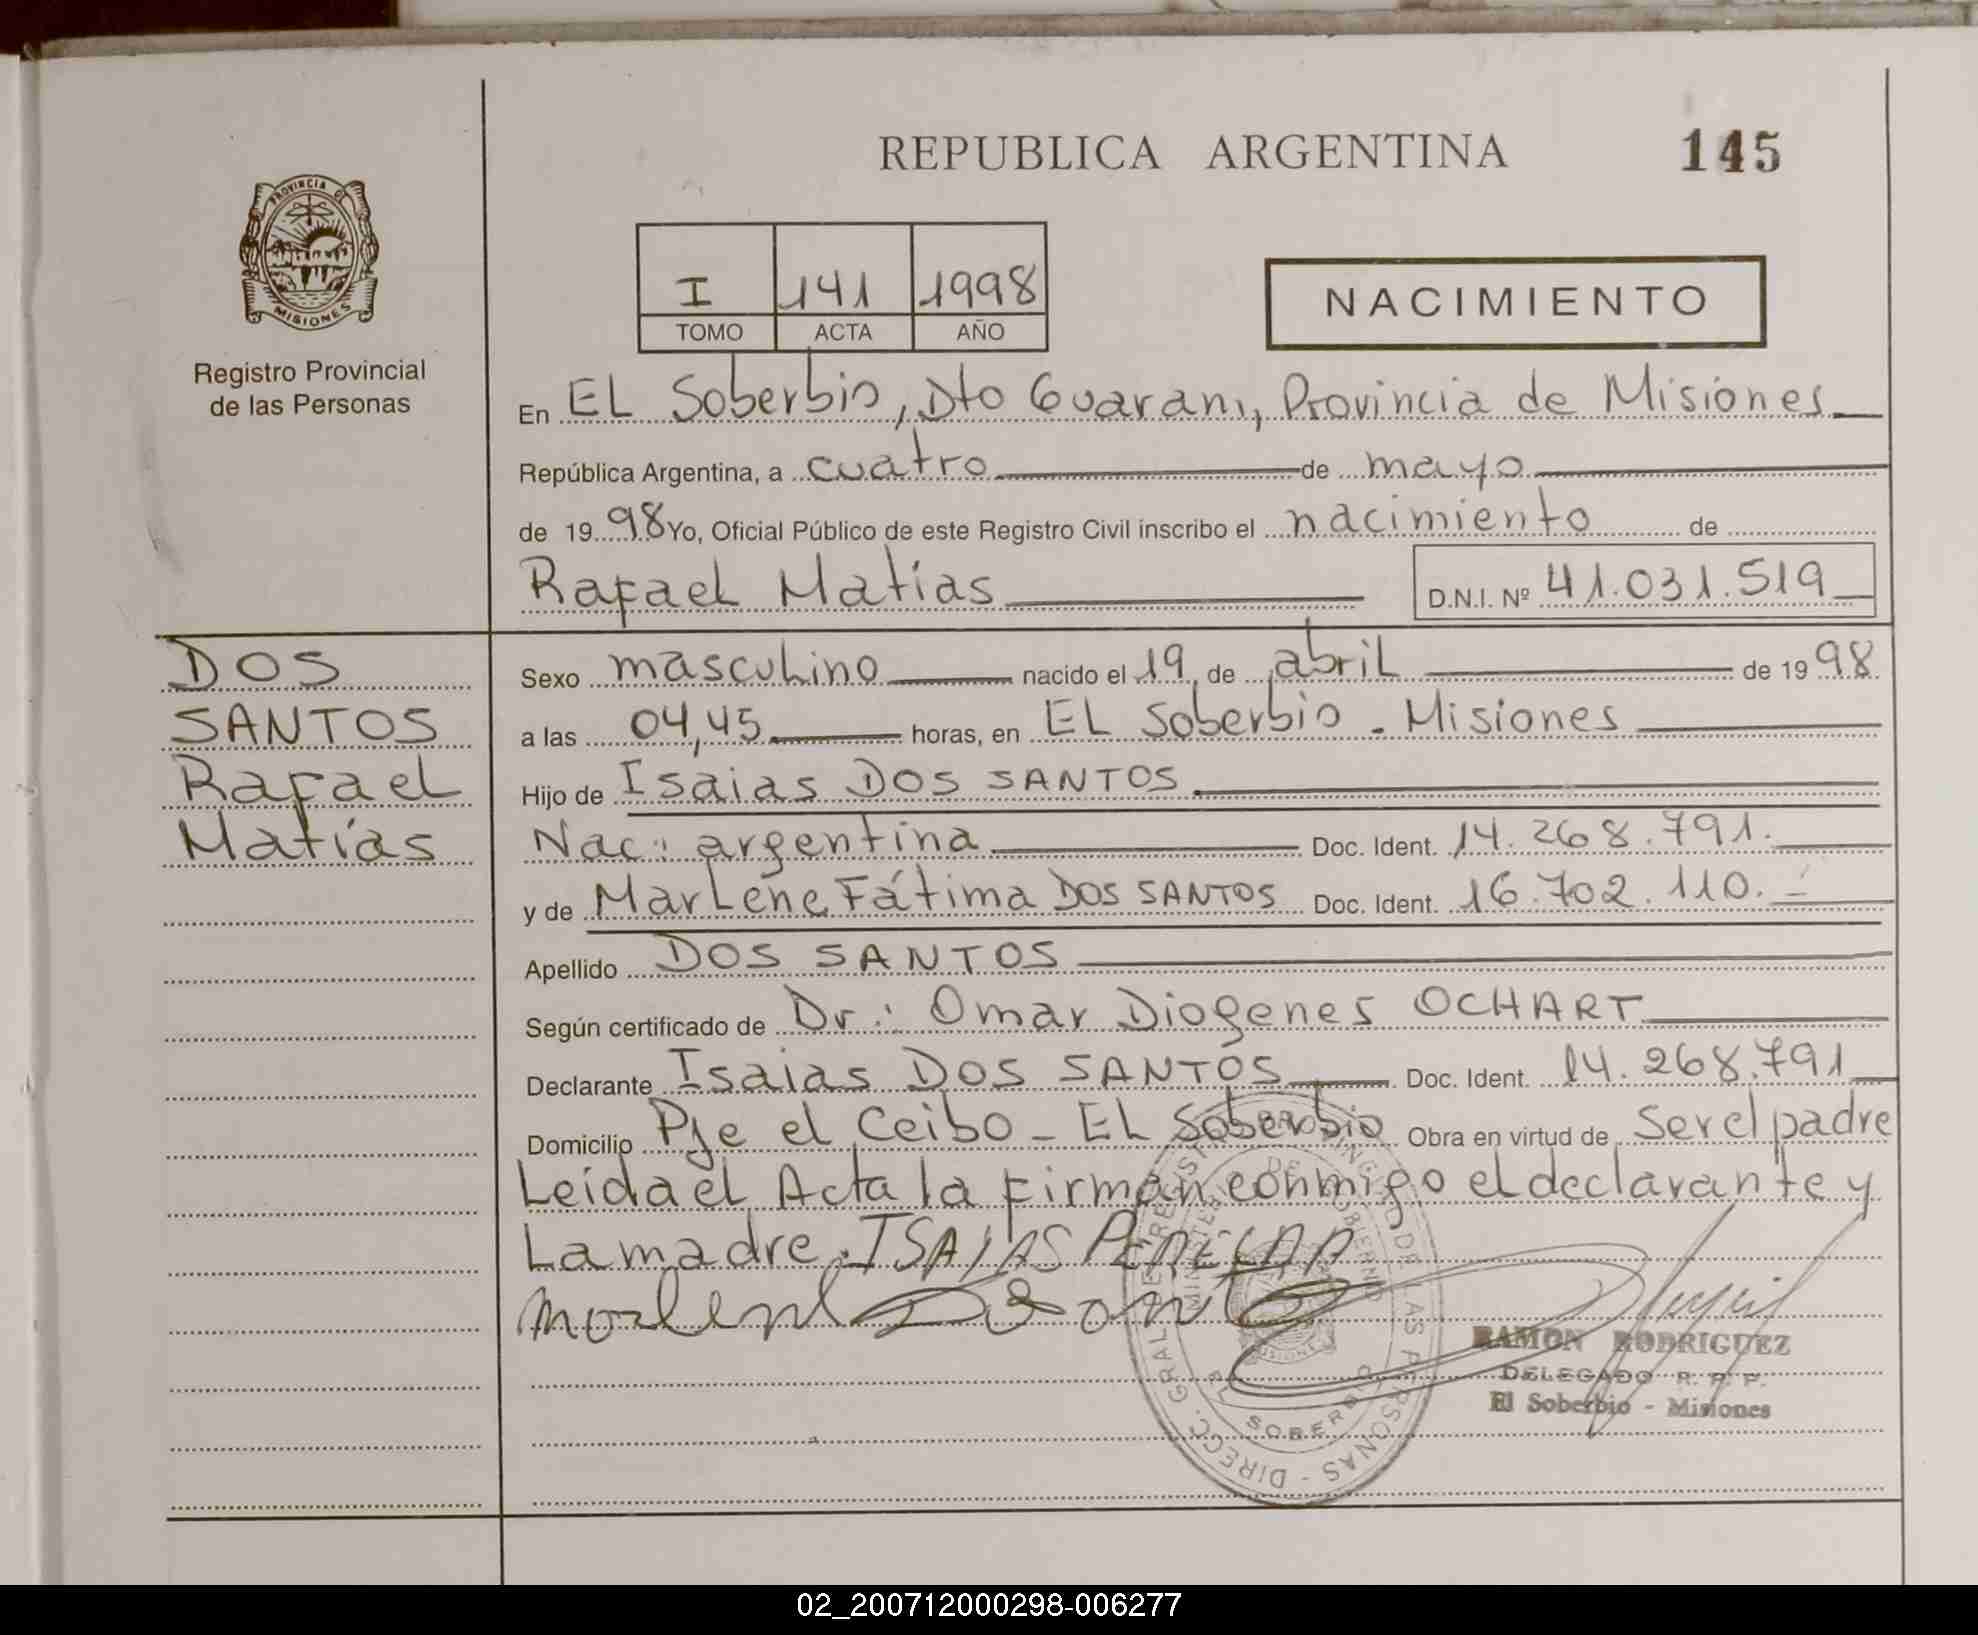 REPUBLICA ARGENTINA
145
PROVINCIA DE
MISIONES
Registro Provincial
de las Personas
I 141 1998
TOMO ACTA AÑO
NACIMIENTO
En EL Soberbio, Dto Guarani, Provincia de Misiones
República Argentina, a cuatro de mayo
de 1998 Yo, Oficial Público de este Registro Civil inscribo el nacimiento de
Rafael Matías
D.N.I. Nº 41.031.519
DOS
SANTOS
Rafael
Matías
Sexo masculino nacido el 19 de abril de 1998
a las 04,45 horas, en EL Soberbio - Misiones
Hijo de Isaias DOS SANTOS
Nac: argentina Doc. Ident. 14.268.791.
y de Marlene Fátima DOS SANTOS Doc. Ident. 16.702.110.
Apellido DOS SANTOS
Según certificado de Dr: Omar Diogenes OCHART
Declarante Isaias DOS SANTOS Doc. Ident. 14.268.791
Domicilio Pje el Ceibo - EL Soberbio Obra en virtud de ser el padre
Leída el Acta la firman conmigo el declarante y
La madre. ISAIAS
RAMON RODRIGUEZ
DELEGADO R. P. P.
El Soberbio - Misiones
02_200712000298-006277